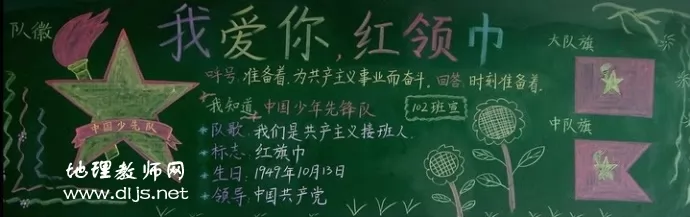 队徽
我爱你,红领巾
呼号:准备着,为共产主义事业而奋斗,回答:时刻准备着.
我知道:中国少年先锋队
102班宣
队歌:我们是共产主义接班人.
标志:红旗巾
生日:1949年10月13日
领导:中国共产党
中国少先队
大队旗
中队旗
地理教师网
www.dljs.net